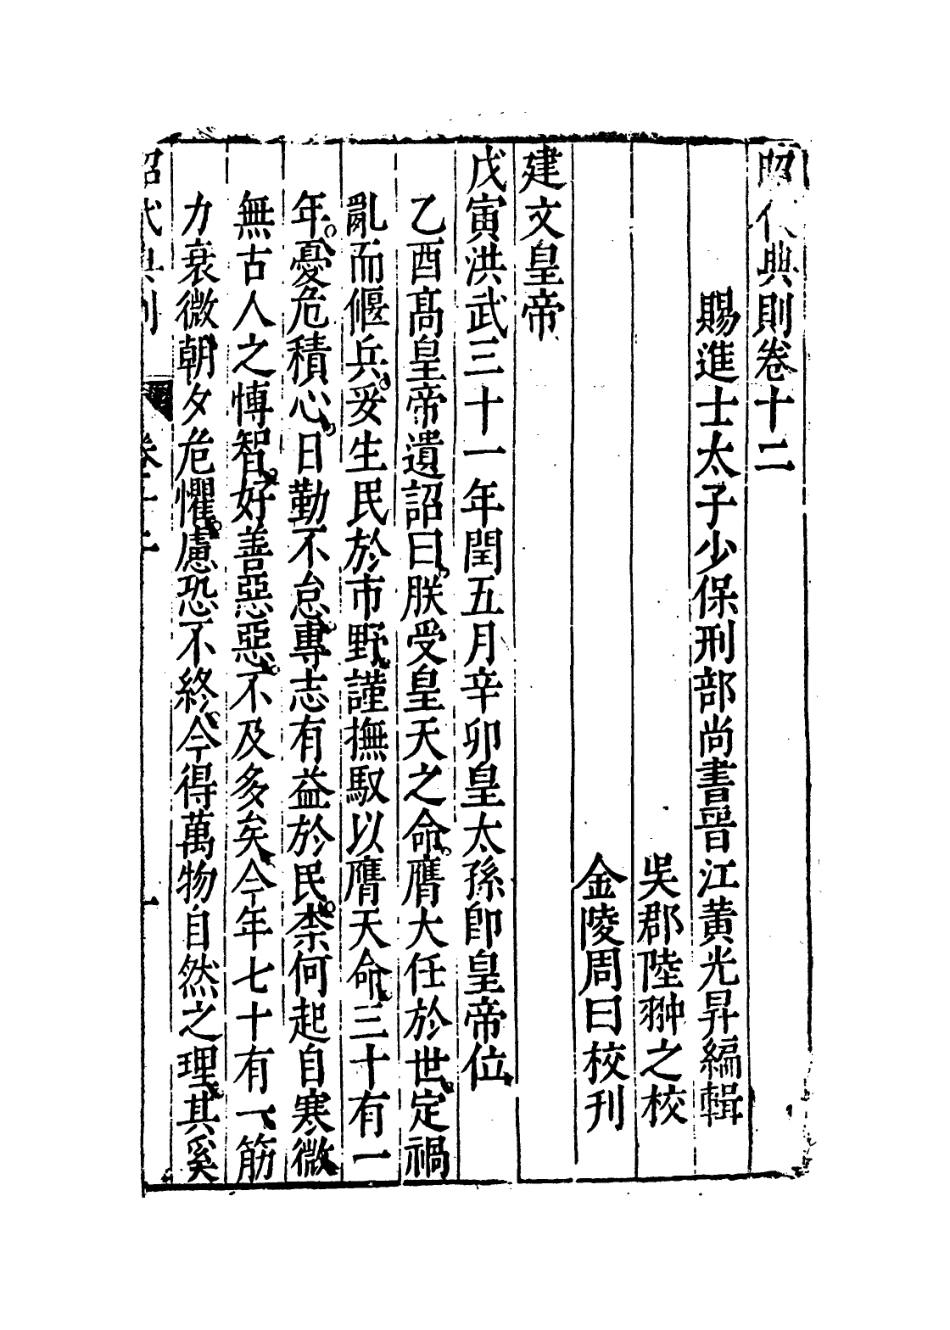 昭代典則卷十二
賜進士太子少保刑部尚書晉江黃光昇編輯
吳郡陸翀之校
金陵周曰校刊
建文皇帝
戊寅洪武三十一年閏五月辛卯皇太孫即皇帝位
乙酉高皇帝遺詔曰朕受皇天之命膺大任於世定禍
亂而偃兵妥生民於市野謹撫馭以膺天命三十有一
年憂危積心日勤不怠專志有益於民柰何起自寒微
無古人之博智好善惡惡不及多矣今年七十有一筋
力衰微朝夕危懼慮恐不終今得萬物自然之理其奚
昭代典則 卷十二 一